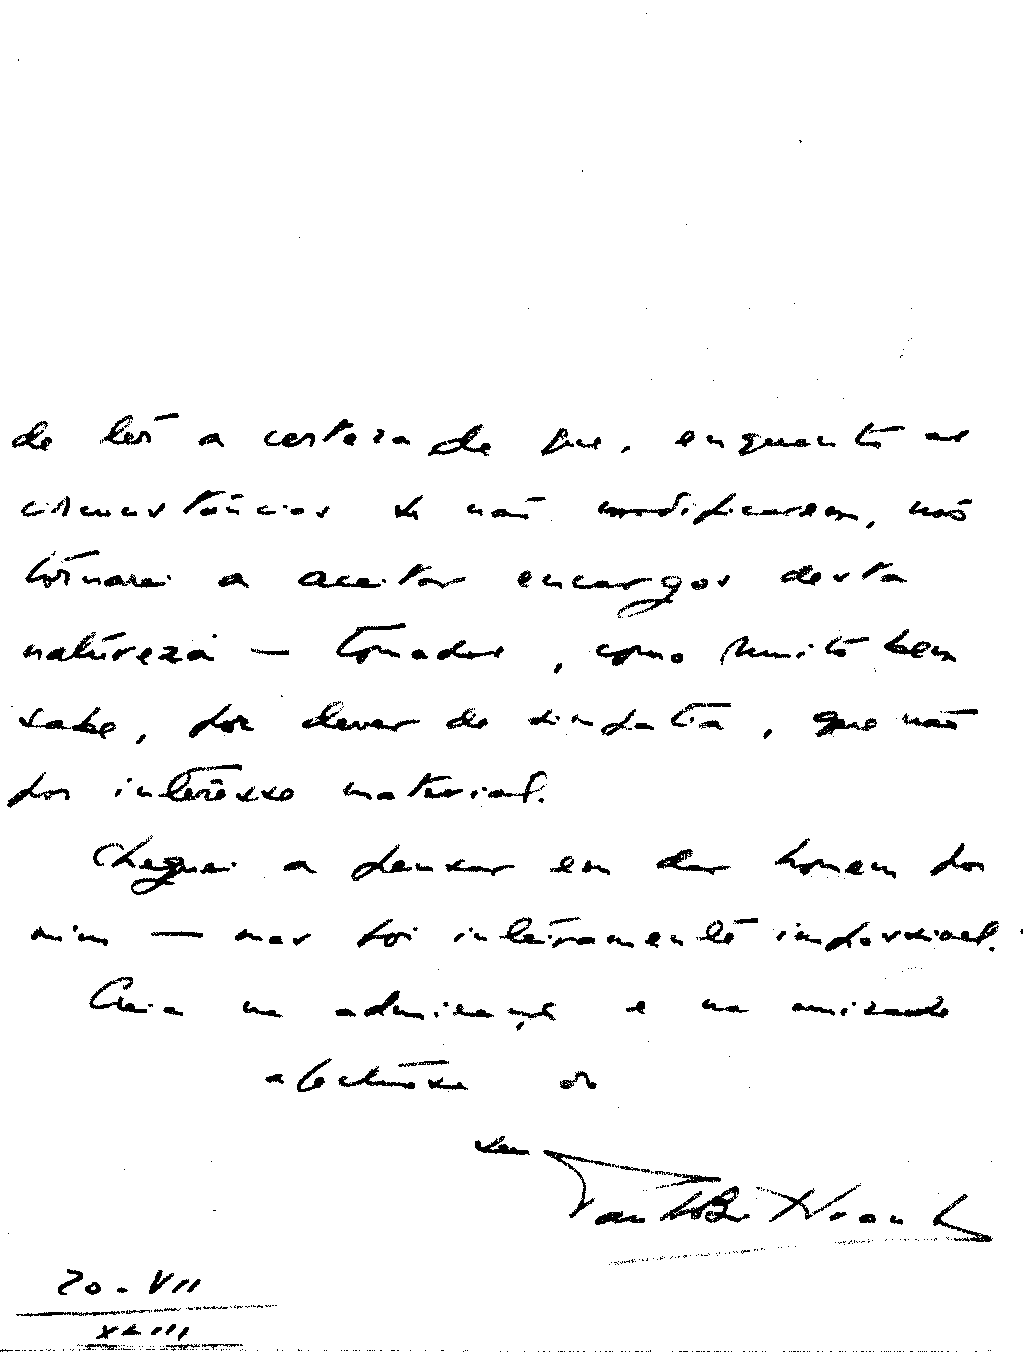 de ter a certeza de que, enquanto as
circunstâncias se não modificarem, não
tornarei a aceitar encargos desta
natureza — tomados, como muito bem
sabe, por dever de simpatia, que não
por interesse material.
Cheguei a pensar em dar homem por
mim — mas foi inteiramente impossivel.
Creia na admiração e na amizade
afectuosa do
seu
20-VII
XLIII